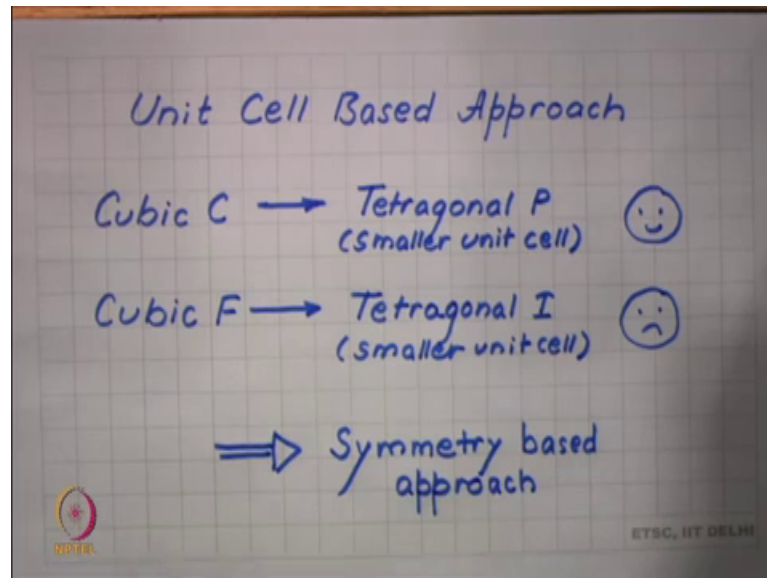 Unit Cell Based Approach
Cubic C → Tetragonal P
(smaller unit cell)
Cubic F → Tetragonal I
(smaller unit cell)
⇒ Symmetry based
approach
NPTEL
ETSC, IIT DELHI